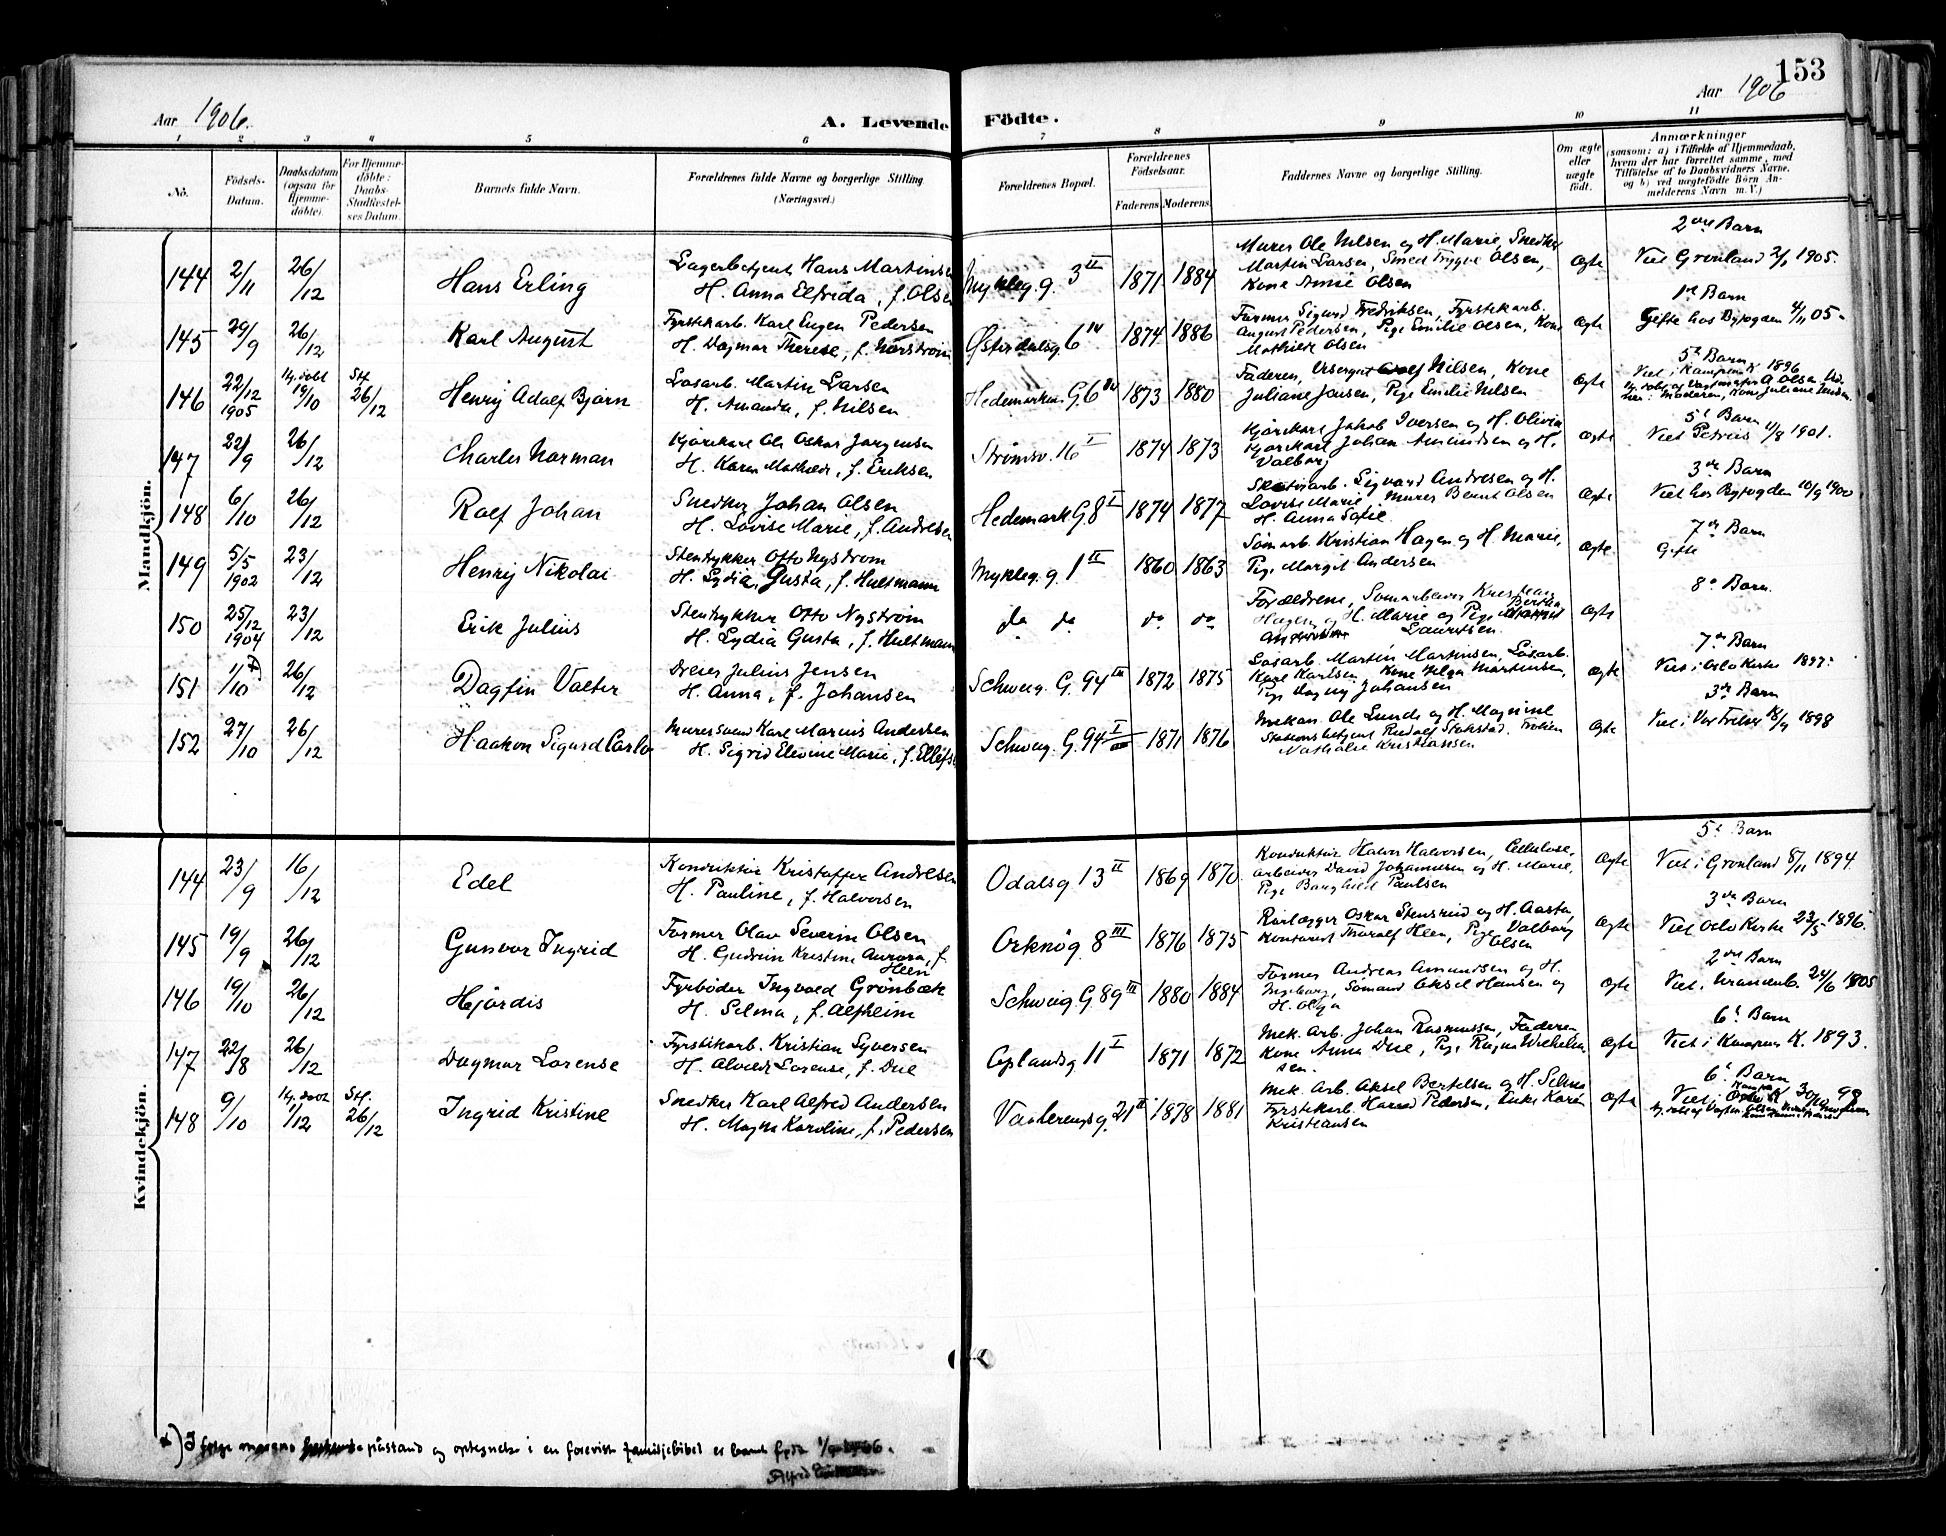 153
Aar 1906.
A. Levende Födte.
Aar 1906
1 2 3 4 5 6 7 8 9 10 11
No.
Födsels-Datum.
Daabsdatum (ogsaa for Hjemme-döbte).
For Hjemme-döbte: Daabs-Stadfæstel-ses Datum.
Barnets fulde Navn.
Forældrenes fulde Navne og borgerlige Stilling (Næringsvei.)
Forældrenes Bopæl.
Forældrenes Födselsaar.
Faderens Moderens
Faddernes Navne og borgerlige Stilling.
Om ægte eller uægte födt.
Anmærkninger
(saasom: a) i Tilfælde af Hjemmedaab,
hvem der har forrettet samme, med
Tilföielse af to Daabsvidners Navne,
og b) ved uægtefödte Börn An-
melderens Navn m. V.)
Mandkjön.
144 2/11 26/12 Hans Erling
Lagerbetjent Hans Martinsen
H. Anna Elfrida, f. Olsen
Mykleg. 9. 3 II 1871 1884
Murer Ole Nilsen og H. Marie, Snedker
Martin Larsen, Smed Trygve Olsen,
Kone Amie Olsen
Ægte
2det Barn
Viet Grønland 2/1 1905.
145 29/9 26/12 Karl August
Fyrstikarb. Karl Eugen Pedersen
H. Dagmar Therese, f. Norstrøm
Østerdalsg 6 IV 1874 1886
Former Sigurd Fredriksen, Fyrstikarb.
August Pedersen, Pige Emilie Olsen, Kone
Mathilde Olsen
Ægte
1ste Barn
Gifte hos Byfogden 4/11 05.
146 22/12 1905 Hj. døbt 19/10 Stf. 26/12 Henry Adolf Bjørn
Løsarb. Martin Larsen
H. Amanda, f. Nilsen
Hedemarken G. 6 IV 1873 1880
Faderen, Nilsen, Kone
Juliane Jensen, Pige Emilie Nilsen
Ægte
5t Barn
Viet i Kampen K. 1896
147 22/9 26/12 Charles Norman
Kjørekarl Ole Oskar Jørgensen
H. Karen Mathilde, f. Eriksen
Strømsv. 16 I 1874 1873
Kjørekarl Jakob Iversen og H. Olivia
Kjørekarl Johan Amundsen og H.
Valborg
Ægte
5t Barn
Viet Petrus 11/8 1901.
148 6/10 26/12 Rolf Johan
Snedker Johan Olsen
H. Lovise Marie, f. Andresen
Hedemark G. 8 I 1874 1877
Sigvard Andresen og H.
Lovise Marie, Murer Bernt Olsen
H. Anna Sofie
Ægte
3de Barn
Viet hos Byfogden 10/9 1900
149 5/5 1902 23/12 Henry Nikolai
Stentrykker Otto Nystrøm
H. Lydia Gusta, f. Hultmann
Mykleg. 9. 1 II 1860 1863
Sømarb. Kristian Hagen og H. Marie,
Pige Margit Andersen
Ægte
7de Barn
Gifte
150 25/12 1904 23/12 Erik Julius
Stentrykker Otto Nystrøm
H. Lydia Gusta, f. Hultmann
do do do do
Forældrene, Sømarbeider Kristian
Hagen og H. Marie og Pige Bertha
Lauritsen.
Ægte
8de Barn.
151 11/10 26/12 Dagfin Valter
Dreier Julius Jensen
H. Anna, f. Johansen
Schweig. G. 94 III 1872 1875
Løsarb. Martin Martinsen, Løsarb.
Kare Karlsen, Kone Helga Martinsen,
Pige Dagny Johansen
Ægte
7de Barn
Viet i Oslo Kirke 1897.
152 27/10 26/12 Haakon Sigurd Carlo
Murersvend Karl Marius Andersen
H. Sigrid Elevine Marie, f. Ellefsen
Schweig. G. 94 I 1871 1876
Mekan. Ole Lunde og H. Magnine
Stationsbetjent Rudolf Stokstad, Frøken
Nathalie Kristiansen
Ægte
3de Barn
Viet i Vor Frelser 18/9 1898
Kvindekjön.
144 23/9 16/12 Edel
Konduktør Kristoffer Andresen
H. Pauline, f. Halvorsen
Odalsg. 13 II 1869 1870
Konduktør Halvor Halvorsen, Cellulose-
arbeider David Johannesen og H. Marie,
Pige Borghild Paulsen
Ægte
5t Barn
Viet i Grønland 8/11 1894.
145 19/9 26/12 Gunvor Ingrid
Former Olav Severin Olsen
H. Gudrun Kristine Aurora, f.
Heen
Orknøg. 8 III 1876 1875
Rørlægger Oskar Stensrud og H. Aasta,
Kontorist Thoralf Heen, Pige Valborg
Olsen
Ægte
3de Barn
Viet Oslo Kirke 23/5 1896.
146 19/10 26/12 Hjørdis
Fyrbøder Ingvald Grønbæk
H. Selma, f. Alfheim
Schweig. G. 89 III 1880 1884
Former Andreas Amundsen og H.
Ingeborg, Sømand Aksel Hansen og
H. Olga
Ægte
2det Barn
Viet i Uranienb. 24/6 1905
147 22/8 26/12 Dagmar Lorense
Fyrstikarb. Kristian Syversen
H. Alvilde Lorense, f. Due
Oplandsg 11 I 1871 1872
Mek. Arb. Johan Rasmussen, Faderen,
Kone Anna Due, Pige Ragna Wilhelm-
sen.
Ægte
6t Barn
Viet i Kampens K. 1893.
148 9/10 Hj. døbt 1/12 Stf. 26/12 Ingrid Kristine
Snedker Karl Alfred Andersen
H. Magna Karoline, f. Pedersen
Vaalerengsg. 21 II 1878 1881
Mek. Arb. Aksel Bertelsen og H. Selma
Fyrstikarb. Harald Pedersen, Enke Karen
Kristiansen
Ægte
6t Barn
Viet i 30/10 98
*) I følge påstand og optegnelse i en forevist familjebibel er barnet født
Alfred